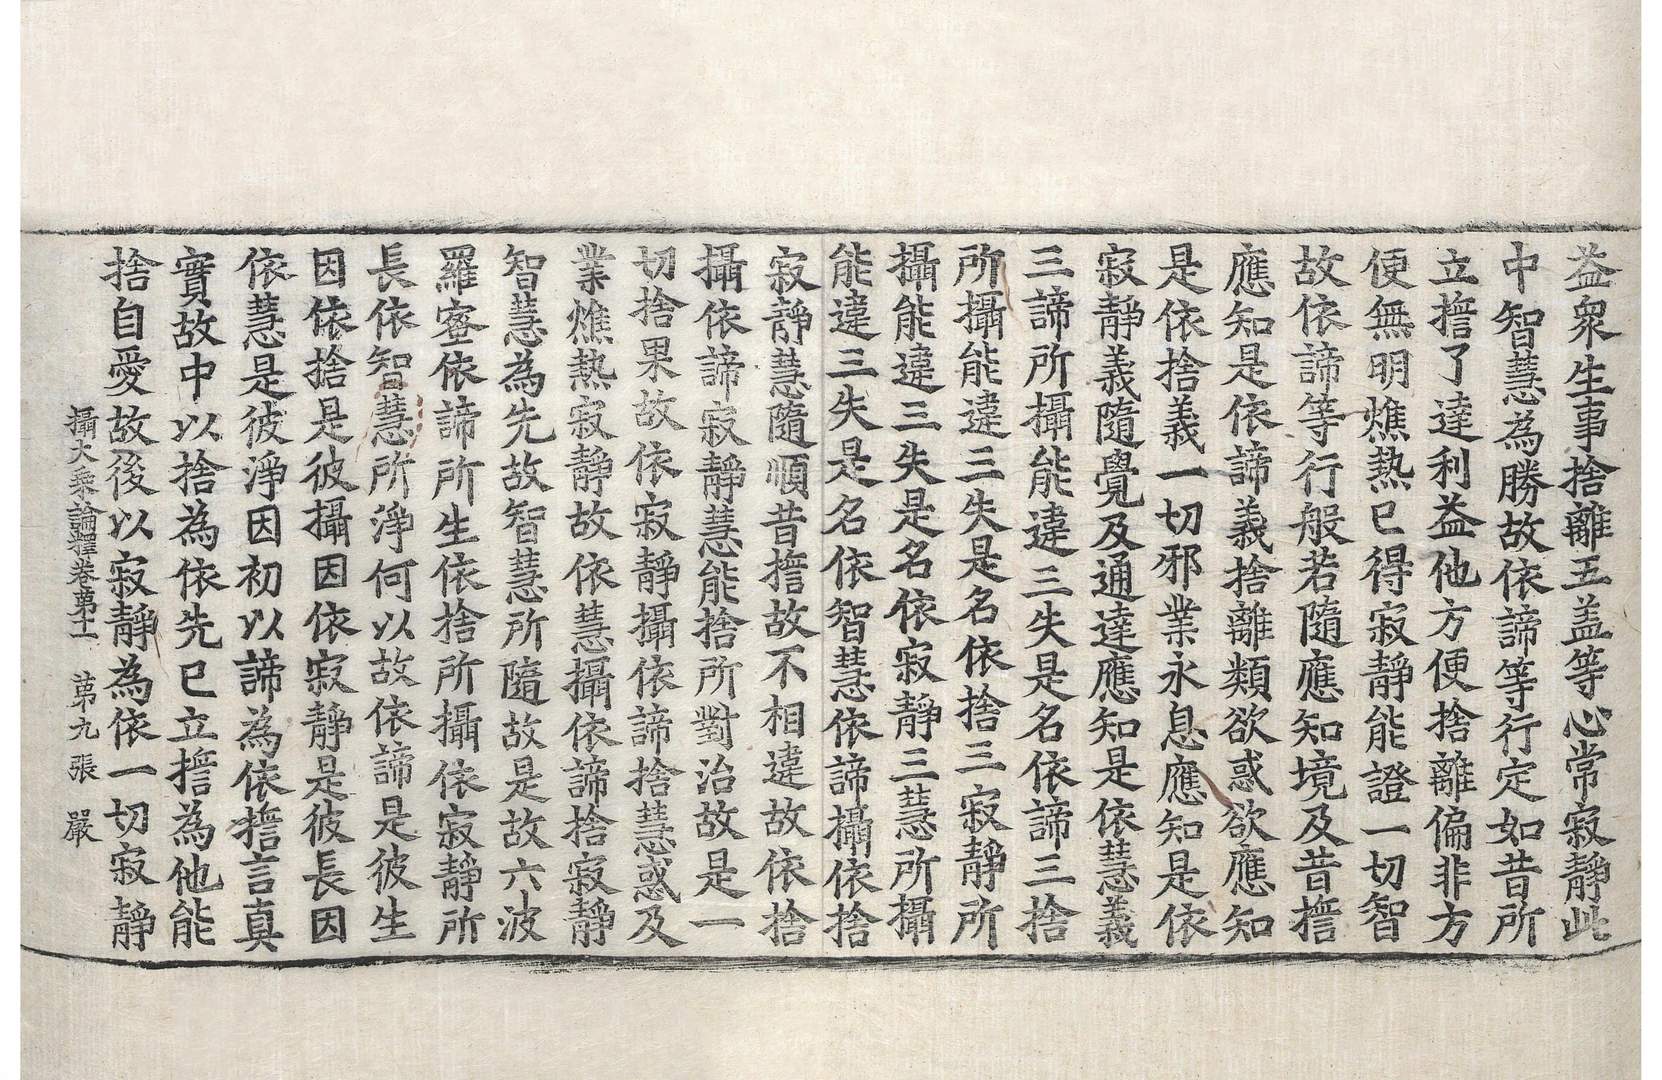 益衆生事捨離五盖等心常寂靜此
中智慧為勝故依諦等行定如昔所
立揞了達利益他方便捨離偏非方
便無明燋熱已得寂靜能證一切智
故依諦等行般若隨應知境及昔揞
應知是依諦義捨離類欲惑欲應知
是依捨義一切邪業永息應知是依
寂靜義隨覺及通達應知是依慧義
三諦所攝能違三失是名依諦三捨
所攝能違三失是名依捨三寂靜所
攝能違三失是名依寂靜三慧所攝
能違三失是名依智慧依諦攝依捨
寂靜慧隨順昔揞故不相違故依捨
攝依諦寂靜慧能捨所對治故是一
切捨果故依寂靜攝依諦捨慧惑及
業燋熱寂靜故依慧攝依諦捨寂靜
智慧為先故智慧所隨故是故六波
羅蜜依諦所生依捨所攝依寂靜所
長依智慧所淨何以故依諦是彼生
因依捨是彼攝因依寂靜是彼長因
依慧是彼淨因初以諦為依揞言真
實故中以捨為依先已立揞為他能
捨自愛故後以寂靜為依一切寂靜
攝大乘論釋卷第十一 第九張 嚴